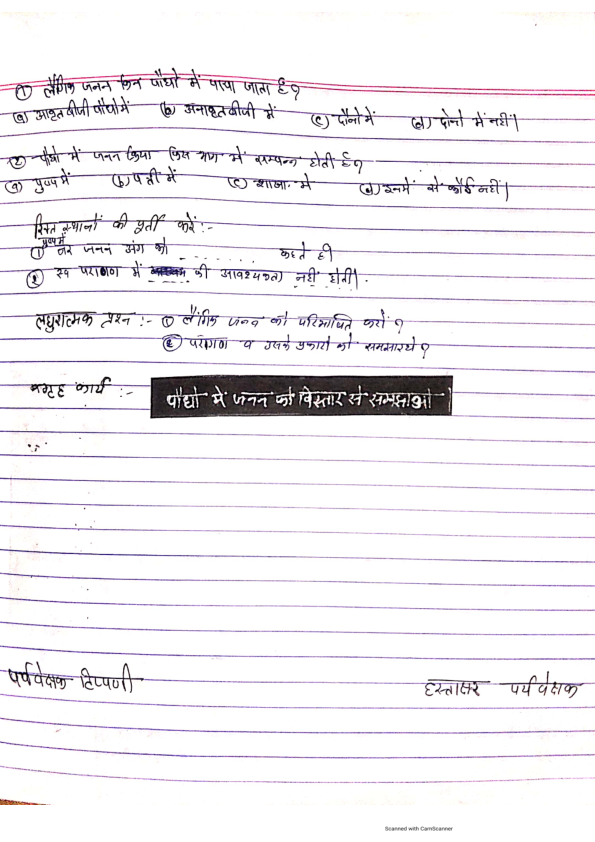 ① लैंगिक जनन किन पौधों में पाया जाता है?
(a) आवृतबीजी पौधों में (b) अनावृतबीजी में (c) दोनों में (d) दोनों में नहीं।
② पौधों में जनन क्रिया किस भाग में सम्पन्न होती है?
(a) पुष्प में (b) पत्ती में (c) शाखा में (d) इनमें से कोई नहीं।
रिक्त स्थानों की पूर्ती करें:-
पुष्प में
① नर जनन अंग को ....... कहते है।
② स्व परागण में ...... की आवश्यकता नहीं होती।
लघुरात्मक प्रश्न :- ① लैंगिक जनन को परिभाषित करो ?
② परागण व उसके प्रकारों को समझाइये ?
गृह कार्य :- पौधों में जनन को विस्तार से समझाओ।
पर्यवेक्षक टिप्पणी
हस्ताक्षर पर्यवेक्षक
Scanned with CamScanner